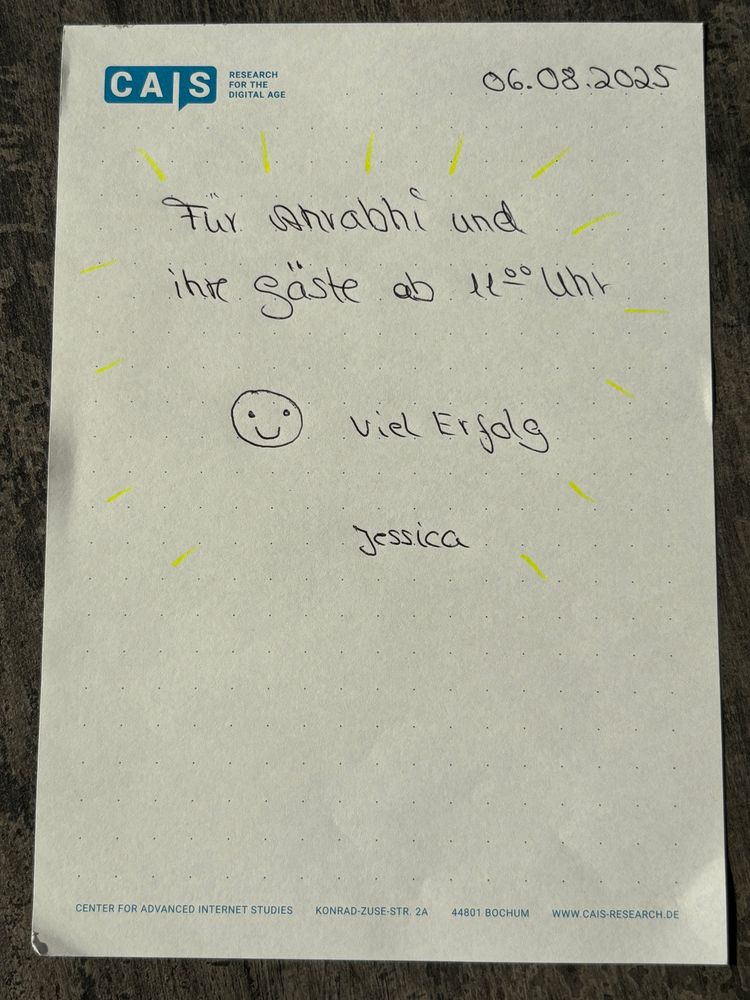 CAIS
RESEARCH
FOR THE
DIGITAL AGE
06.08.2025
Für Anrabhi und
ihre Gäste ab 11⁰⁰ Uhr
Viel Erfolg
Jessica
CENTER FOR ADVANCED INTERNET STUDIES KONRAD-ZUSE-STR. 2A 44801 BOCHUM WWW.CAIS-RESEARCH.DE